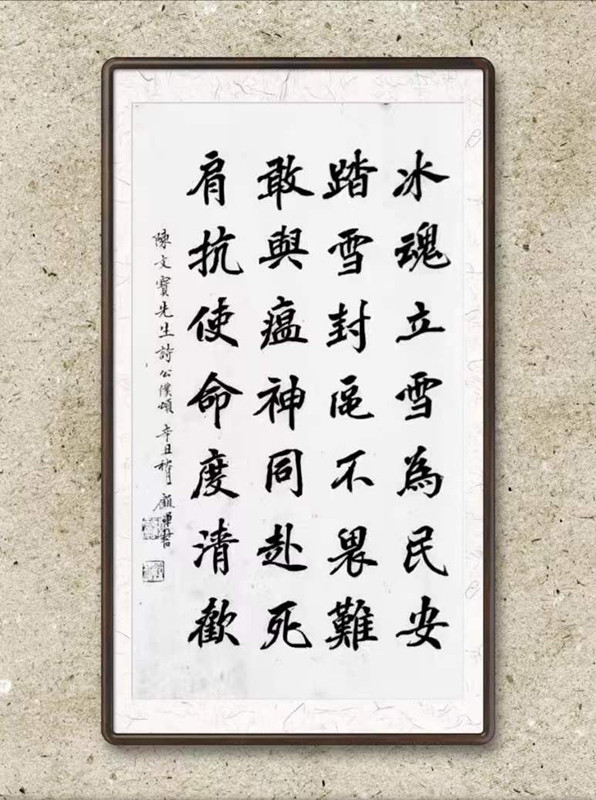 冰魂立雪為民安
踏雪封區不畏難
敢與瘟神同赴死
肩抗使命度清歡
陳文寶先生詩公僕頌 辛丑 顧 書